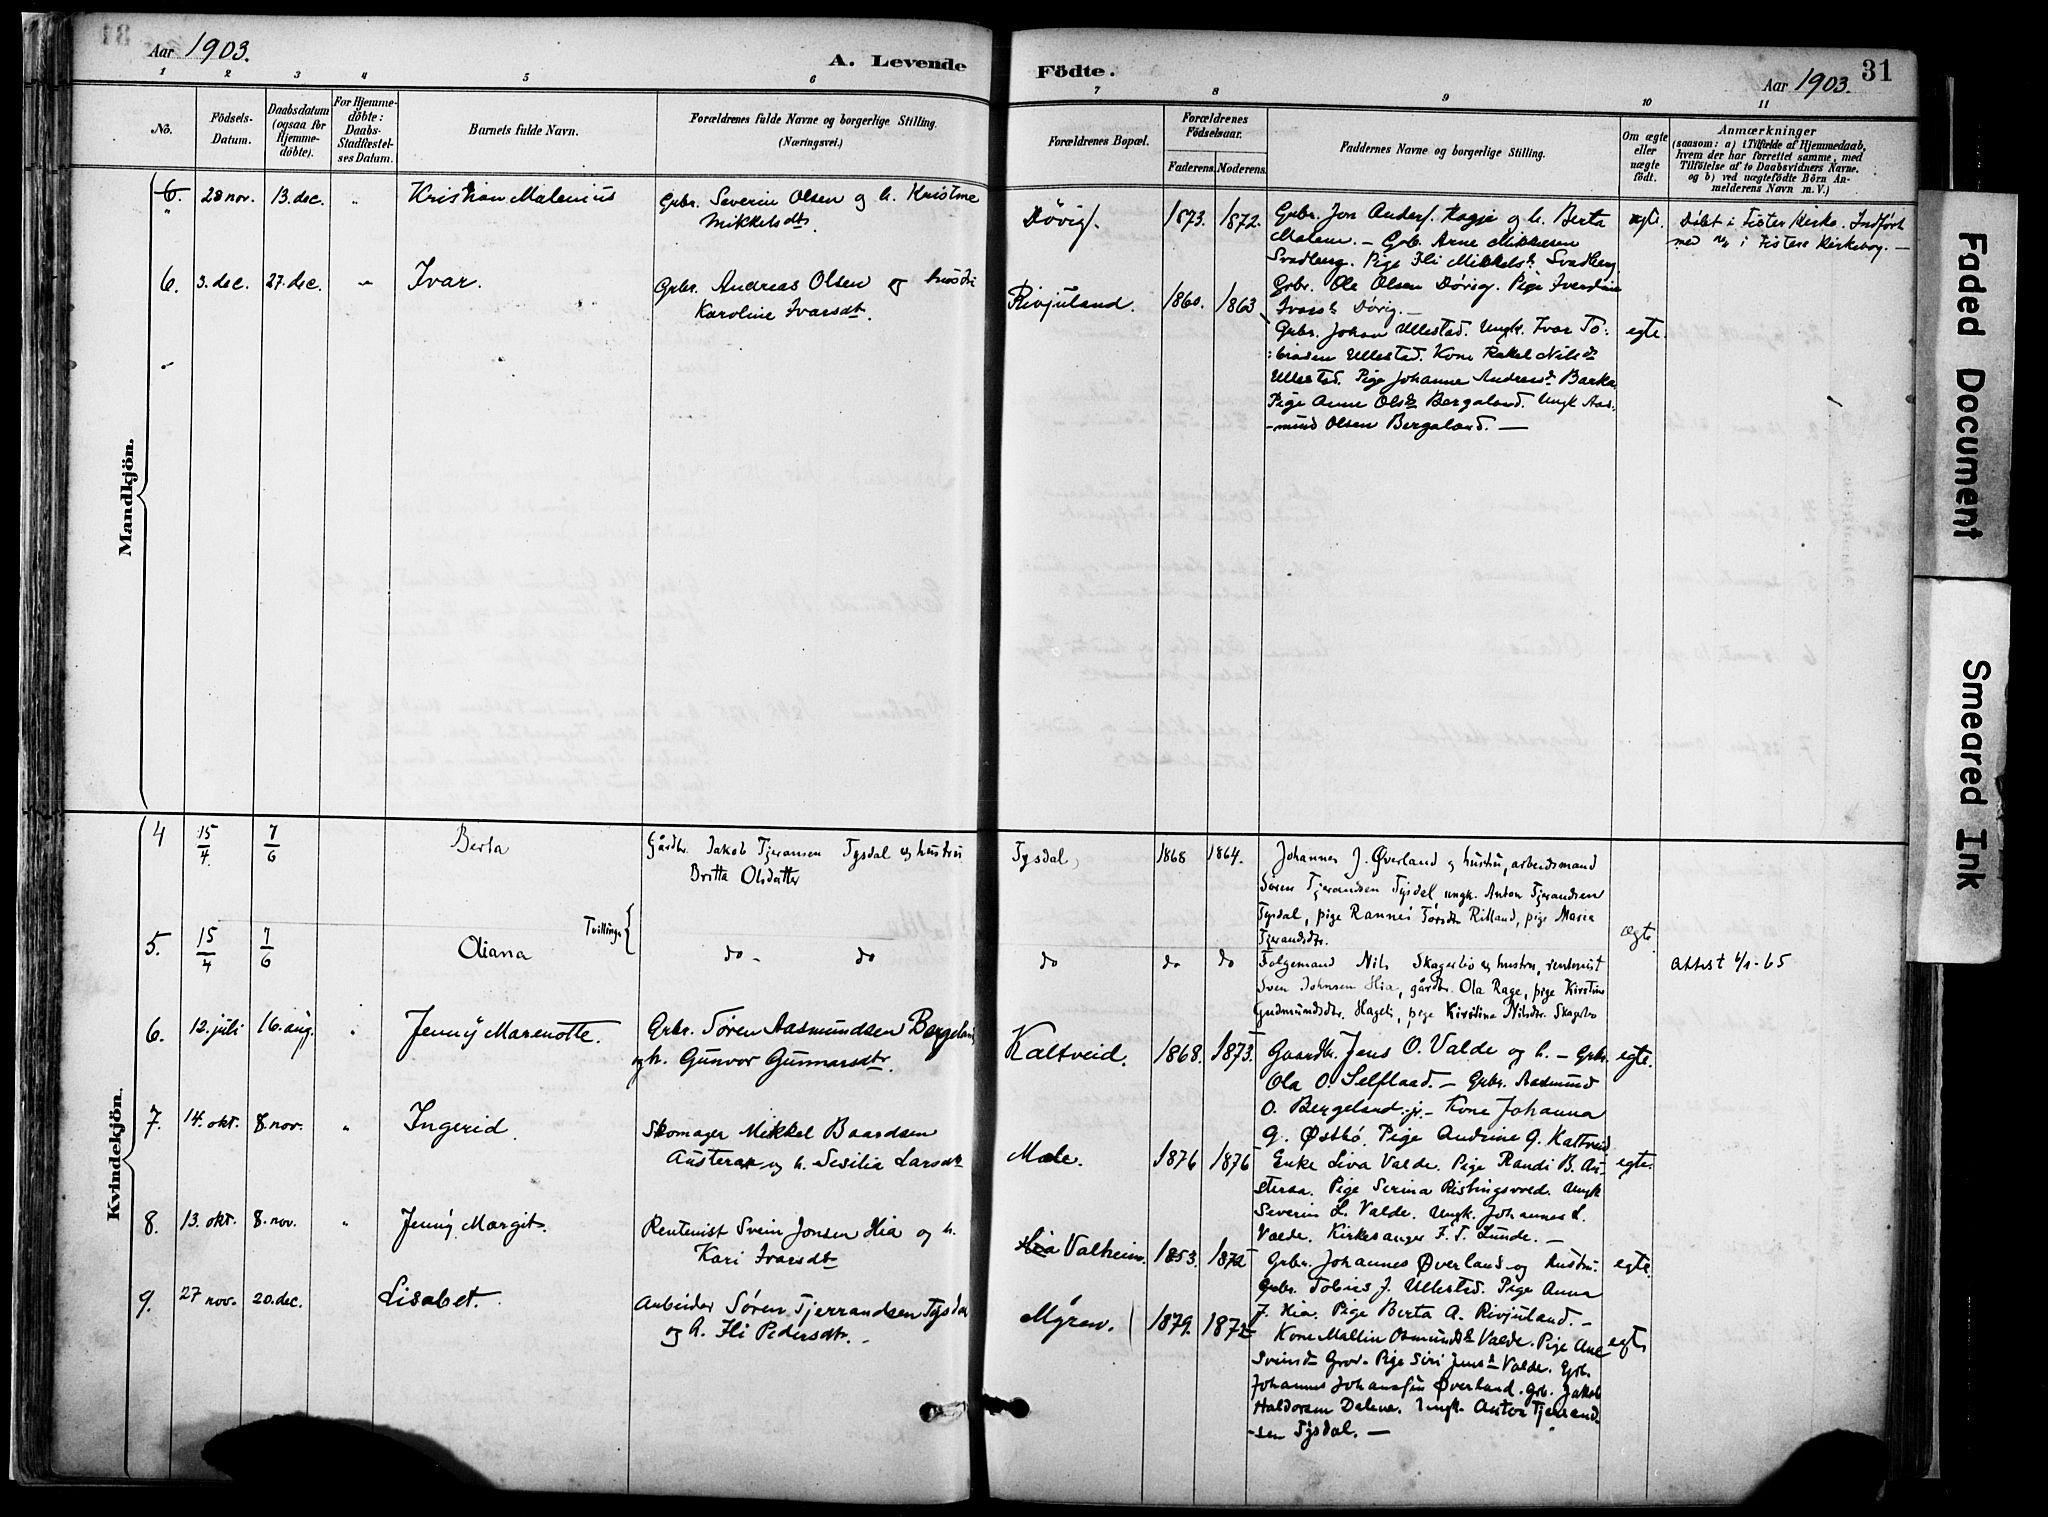 Aar 1903.
A. Levende
Födte.
Aar 1903.
31
1 2 3 4 5 6 7 8 9 10 11
No.
Födsels-
Datum.
Daabsdatum
(ogsaa for
Hjemme-
döbte).
For Hjemme-
döbte:
Daabs-
Stadfæstel-
ses Datum.
Barnets fulde Navn.
Forældrenes fulde Navne og borgerlige Stilling.
(Næringsvei.)
Forældrenes Bopæl.
Forældrenes
Födselsaar.
Faderens. Moderens.
Faddernes Navne og borgerlige Stilling.
Om ægte
eller
uægte
födt.
Anmærkninger
(saasom: a) i Tilfælde af Hjemmedaab,
hvem der har forrettet samme, med
Tilföielse af to Daabsvidners Navne.
og b) ved uægtefödte Börn An-
melderens Navn m. V.)
Mandkjön.
6. 28 nov. 13. dec. " Kristian Malenius
Grbr. Severin Olsen og h. Kristine
Mikkelsdt.
Døvig. 1873. 1872.
Grbr. Jon Anders. Hagje og h. Berta
Malene. - Grb. Arne Mikkelsen
Svadberg. Pige Ili Mikkelsd. Svadberg
Grbr. Ole Olsen Døvig. Pige Iverdine
Ivarsd. Døvig. -
egte.
Döbt i Fister Kirke. Indført
med i Fisters Kirkebog. -
6. 3. dec. 27. dec. " Ivar.
Grbr. Andreas Olsen og hustru
Karoline Ivarsdt.
Rivjuland. 1860. 1863
Grbr. Johan Ullestad. Ungk. Ivar To-
biasen Ullestad. Kone Rakel Nilsdt
Ullestad. Pige Johanne Andreasd. Barka.
Pige Anne Olsd. Bergaland. Ungk Aas-
-mund Olsen Bergaland. -
egte.
Kvindekjön.
4 15/4. 7/6 Berta
Gårdbr. Jakob Tjeransen Tysdal og hustru
Britta Olsdatter
Tysdal, 1868 1864.
Johannes J. Øverland og hustru, arbeidsmand
Sören Tjerandsen Tysdal, ungk. Anton Tjerandsen
Tysdal, pige Rannei Torsdt. Ritland, pige Maria
Tjerandsdtr.
Tvillinger
Ægte.
5. 15/4 7/6 Oliana
do - do
do do do
Folgemand Nils Skagerbo og hustru, rentenist
Sven Johnsen Hia, gårdbr. Ola Rage, pige Kirstine
Gudmundsdtr. Hagen, pige Kirstine Nilsdtr. Skagerbo
Attest 4/1-65
6. 12. juli 16. aug. " Jenny Marenotte.
Grbr. Søren Aasmundsen Bergeland
og h. Gunvor Gunnarsdt.
Kaltveid. 1868. 1873.
Gaardbr. Jens O. Valde og h. - Grbr.
Ola O. Selfland. - Grbr. Aasmund
O. Bergeland jr. - Kone Johanna
G. Østbø. Pige Andrine G. Kaltveid
egte.
7. 14. okt. 8. nov. " Ingerid.
Skomager Mikkel Baardsen
Austeraa og h. Sesilia Larsdt
Mæle. 1876 1876
Enke Liva Valde. Pige Randi B. Au-
steraa. Pige Serina Ristingsvold. Ungk
Severin L. Valde. Ungk. Johannes L.
Valde. Kirkesanger F. T. Lunde. -
egte.
8. 13. okt. 8. nov. " Jenny Margit.
Rentenist Svein Jonsen Hia og h.
Kari Ivarsdt
Hia Valheim. 1853. 1872
Grbr. Johannes Øverland og hustru.
Grbr. Tobias J. Ullestad. Pige Anna
J. Hia. Pige Berta A. Rivjuland. -
egte.
9. 27 nov. 20. dec. Lisabet.
Arbeider Søren Tjerrandsen Tysdal
og h. Ili Pedersdtr. -
Myren. 1879. 1872
Kone Mallin Osmundsd. Valde. Pige Ane
Sveinsdt Grov. Pige Siri Jensd. Valde. Grb.
Johannes Johansen Øverland. Grb. Jakob
Haldorsen Dalene. Ungk. Anton Tjerrand-
-sen Tysdal. -
egte
Faded Document
Smeared Ink